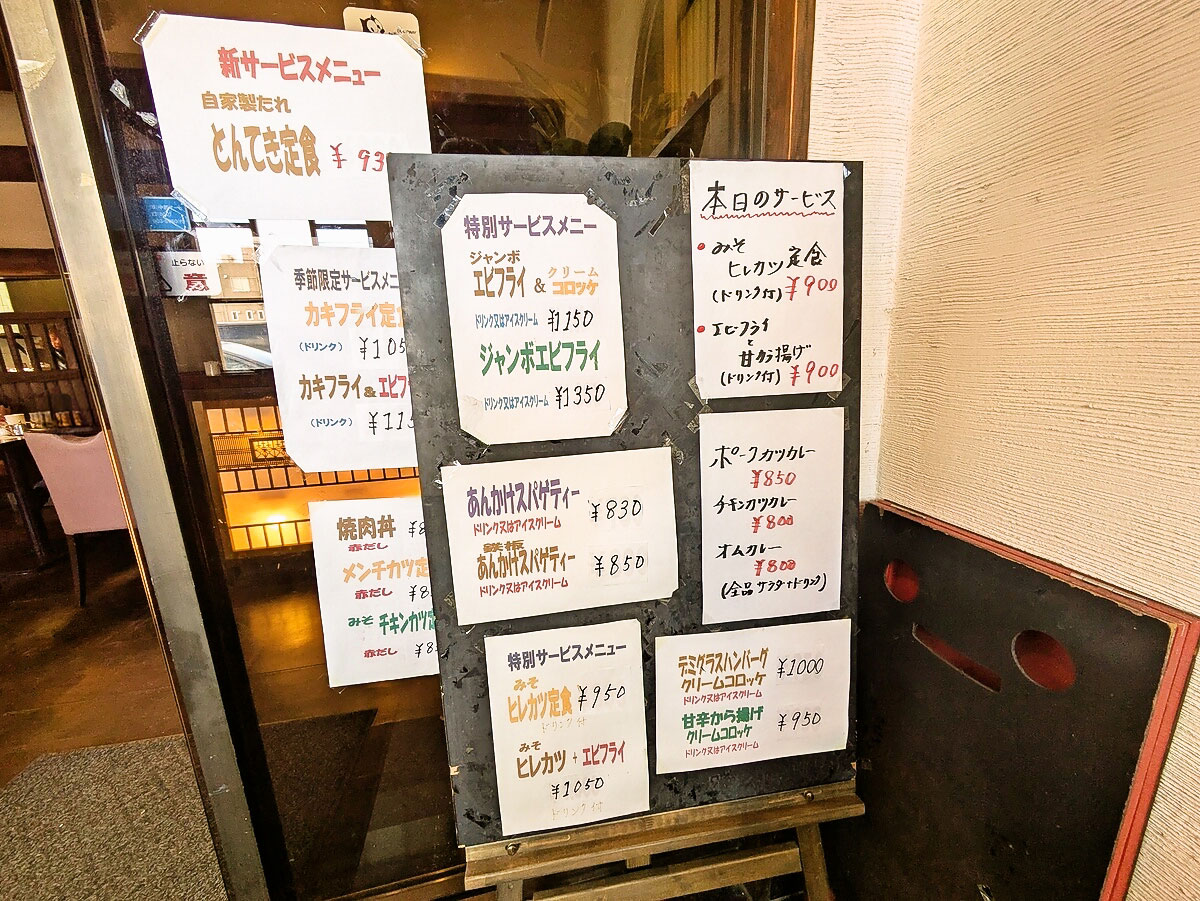 新サービスメニュー
自家製たれ
とんてき定食 ¥93
季節限定サービスメニ
カキフライ定
(ドリンク) ¥105
カキフライ&エビフ
(ドリンク) ¥115
止らない
意
焼肉丼 ¥8
赤だし
メンチカツ定
赤だし ¥8
みそ チキンカツ定
赤だし ¥8
特別サービスメニー
ジャンボ
エビフライ & クリームコロッケ
ドリンク又はアイスクリーム ¥1150
ジャンボエビフライ
ドリンク又はアイスクリーム ¥1350
あんかけスパゲティー ¥830
ドリンク又はアイスクリーム
鉄板
あんかけスパゲティー ¥850
ドリンク又はアイスクリーム
特別サービスメニュー
みそ
ヒレカツ定食 ¥950
ドリンク付
みそ
ヒレカツ + エビフライ
¥1050
ドリンク付
本日のサービス
• みそ
ヒレカツ定食
(ドリンク付) ¥900
• エビフライ
と
甘から揚げ
(ドリンク付) ¥900
ポークカツカレー
¥850
チキンカツカレー
¥800
オムカレー
¥800
(全品サラダ+ドリンク)
デミグラスハンバーグ ¥1000
クリームコロッケ
ドリンク又はアイスクリーム
甘辛から揚げ ¥950
クリームコロッケ
ドリンク又はアイスクリーム